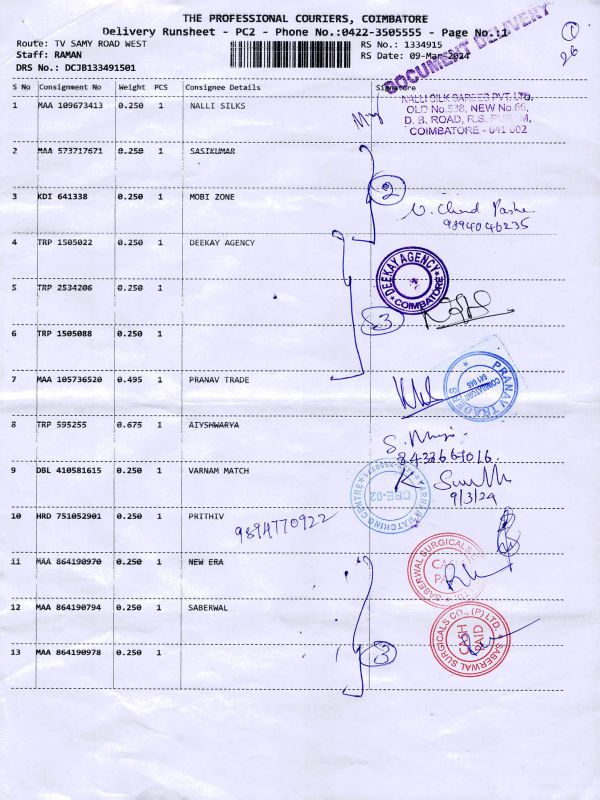 THE PROFESSIONAL COURIERS, COIMBATORE
Delivery Runsheet - PC2 - Phone No.:0422-3505555 - Page No.:1
Route: TV SAMY ROAD WEST RS No.: 1334915
Staff: RAMAN RS Date: 09-Mar-2024
DRS No.: DCJB133491501
DOCUMENT DELIVERY
1
26
S No Consignment No Weight PCS Consignee Details Signature
1 MAA 109673413 0.250 1 NALLI SILKS
NALLI SILK SAREES PVT. LTD.
OLD No.538, NEW No.66,
D. B. ROAD, R.S. PURAM,
COIMBATORE - 641 002
2 MAA 573717671 0.250 1 SASIKUMAR
2
3 KDI 641338 0.250 1 MOBI ZONE
9894046235
4 TRP 1505022 0.250 1 DEEKAY AGENCY
DEEKAY AGENCY
COIMBATORE
5 TRP 2534206 0.250 1
3
6 TRP 1505088 0.250 1
7 MAA 105736520 0.495 1 PRANAV TRADE
PRANAV TRADERS
COIMBATORE
8 TRP 595255 0.675 1 AIYSHWARYA
8433667016
9 DBL 410581615 0.250 1 VARNAM MATCH
9/3/24
MATCHING CENTRE
CBE-02
10 HRD 751052901 0.250 1 PRITHIV
9894770922
11 MAA 864190970 0.250 1 NEW ERA
SABERWAL SURGICALS
12 MAA 864190794 0.250 1 SABERWAL
SABERWAL SURGICALS CO., (P) LTD.
CASH
PAID
13 MAA 864190978 0.250 1
3